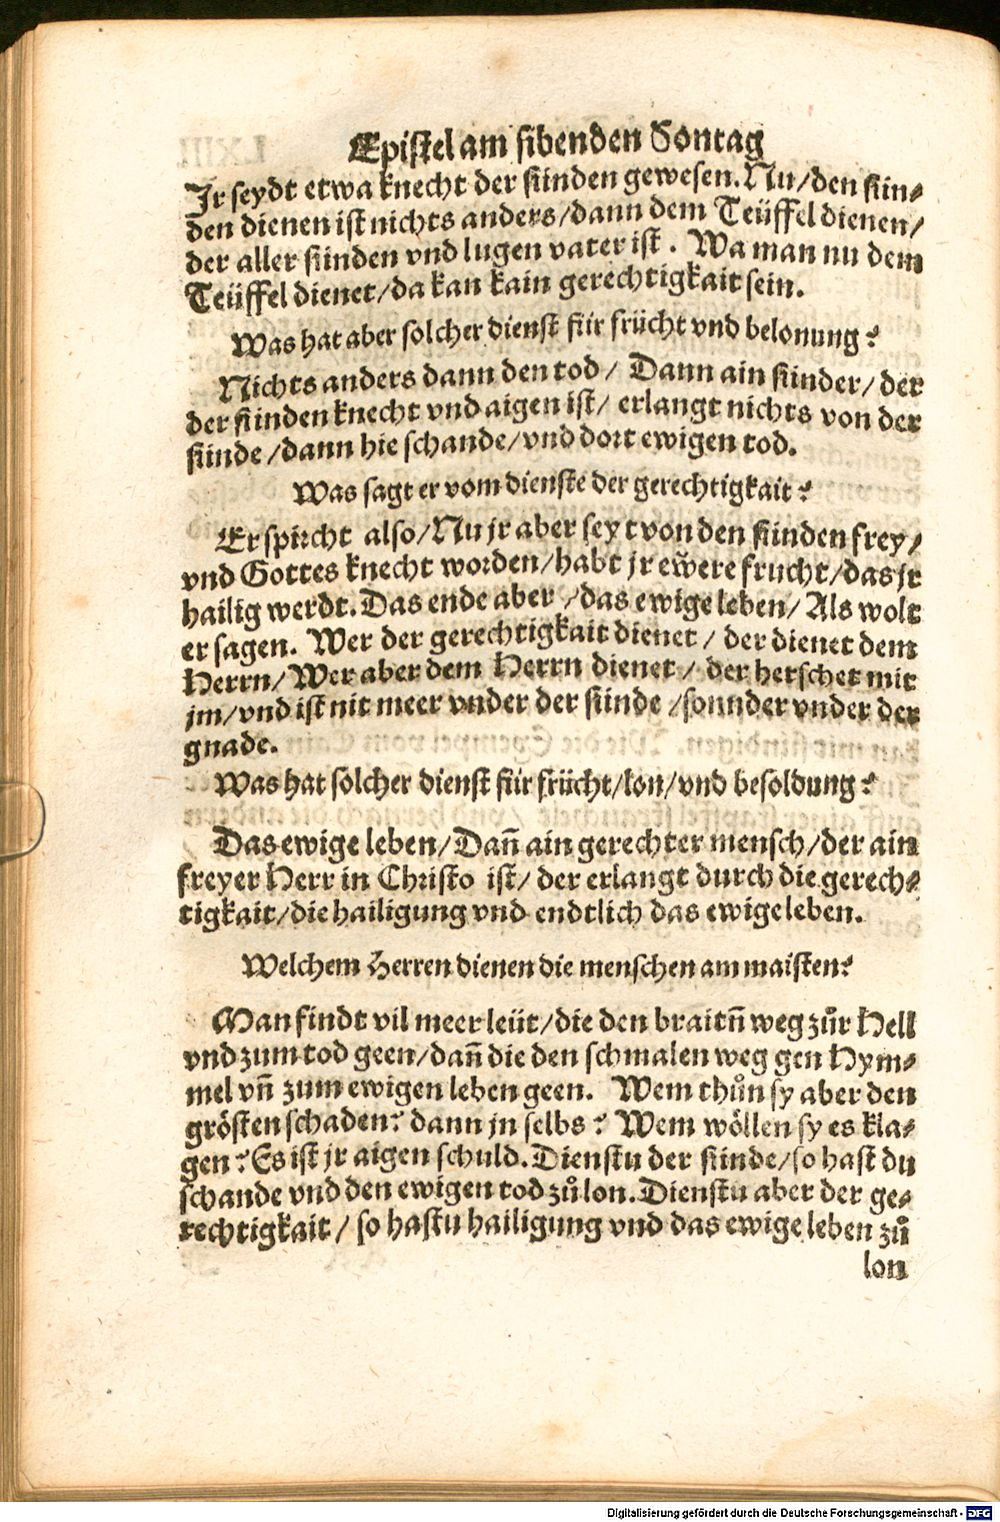 Epistel am sibenden Sontag
Jr seydt etwa knecht der sünden gewesen. Nu/den sün⸗
den dienen ist nichts anders/dann dem Teüffel dienen/
der aller sünden vnd lugen vater ist. Wa man nu dem
Teüffel dienet/da kan kain gerechtigkait sein.
Was hat aber solcher dienst für frücht vnd belonung?
Nichts anders dann den tod/ Dann ain sünder/der
der sünden knecht vnd aigen ist/ erlangt nichts von der
sünde/dann hie schande/vnd dort ewigen tod.
Was sagt er vom dienste der gerechtigkait?
Er spricht also/Nu jr aber seyt von den sünden frey/
vnd Gottes knecht worden/habt jr ewere frucht/das jr
hailig werdt. Das ende aber/das ewige leben/ Als wolt
er sagen. Wer der gerechtigkait dienet/der dienet dem
Herrn/Wer aber dem Herrn dienet/ der herschet mit
jm/vnd ist nit meer vnder der sünde/sonnder vnder der
gnade.
Was hat solcher dienst für frücht/lon/vnd besoldung?
Das ewige leben/Dañ ain gerechter mensch/der ain
freyer Herr in Christo ist/ der erlangt durch die gerech⸗
tigkait/die hailigung vnd endtlich das ewige leben.
Welchem Herren dienen die menschen am maisten?
Man findt vil meer leüt/die den braitñ weg zůr Hell
vnd zum tod geen/dañ die den schmalen weg gen Hym⸗
mel vñ zum ewigen leben geen. Wem thůn sy aber den
grösten schaden? dann jn selbs? Wem wöllen sy es kla⸗
gen? Es ist jr aigen schuld. Dienstu der sünde/so hast du
schande vnd den ewigen tod zů lon. Dienstu aber der ge⸗
rechtigkait/ so hastu hailigung vnd das ewige leben zů
lon
Digitalisierung gefördert durch die Deutsche Forschungsgemeinschaft - DFG